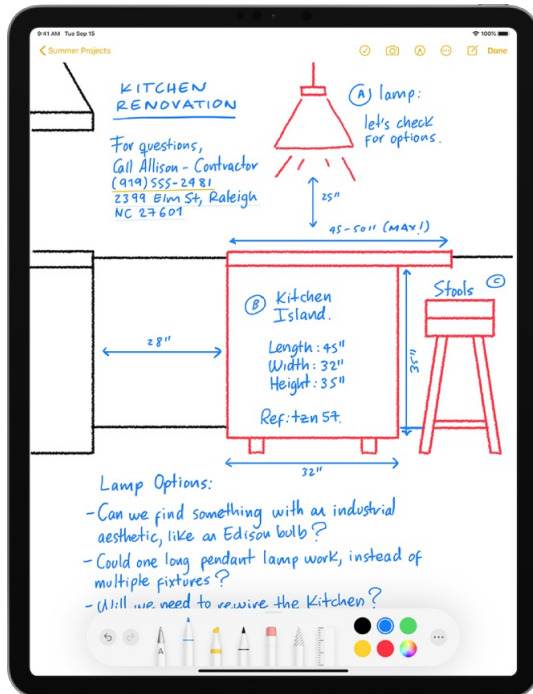 9:41 AM Tue Sep 15
100%
Summer Projects
Done
KITCHEN
RENOVATION
For questions,
Call Allison - Contractor
(919)555-2481
2399 Elm St, Raleigh
NC 27601
A lamp:
let's check
for options.
25"
45-50" (MAX!)
28"
B Kitchen
Island.
Length: 45"
Width: 32"
Height: 35"
Ref: tzn 57.
35"
Stools C
32"
Lamp Options:
- Can we find something with an industrial
aesthetic, like an Edison bulb?
- Could one long pendant lamp work, instead of
multiple fixtures?
- Will we need to rewire the Kitchen?
A